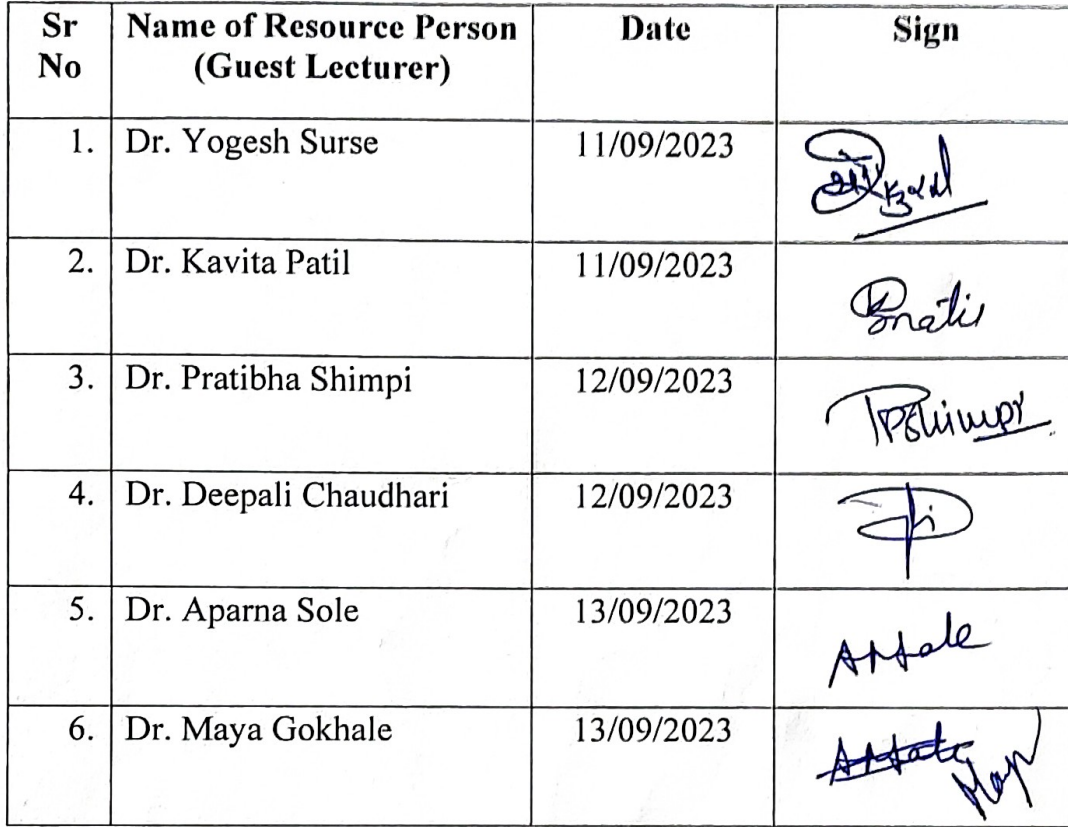 Sr No Name of Resource Person (Guest Lecturer) Date Sign
1. Dr. Yogesh Surse 11/09/2023
2. Dr. Kavita Patil 11/09/2023
3. Dr. Pratibha Shimpi 12/09/2023 PShimpi
4. Dr. Deepali Chaudhari 12/09/2023
5. Dr. Aparna Sole 13/09/2023
6. Dr. Maya Gokhale 13/09/2023